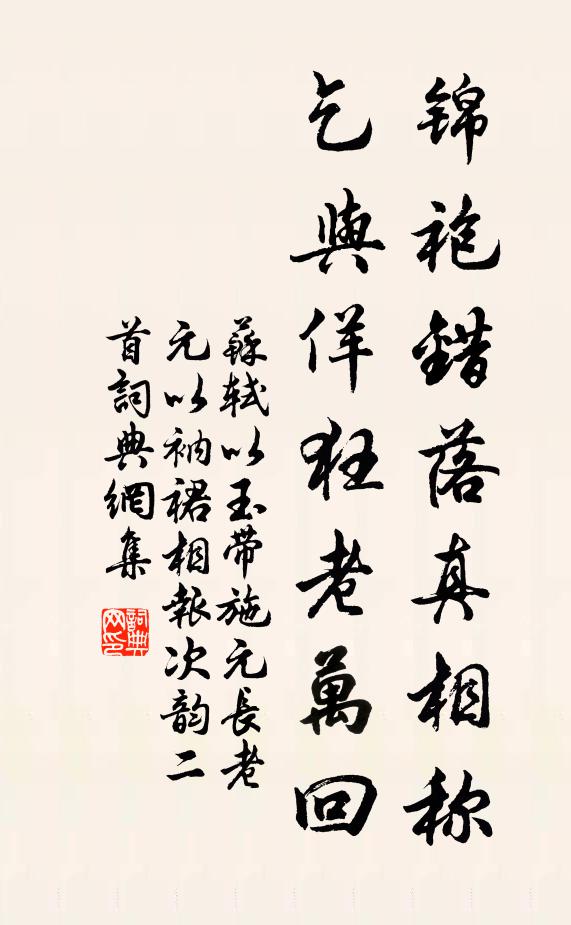 锦袍錯落真相称
乞與佯狂老萬回
蘇轼以玉带施元長老
元以衲裙相報次韵二
首詞典網集
詞典网印